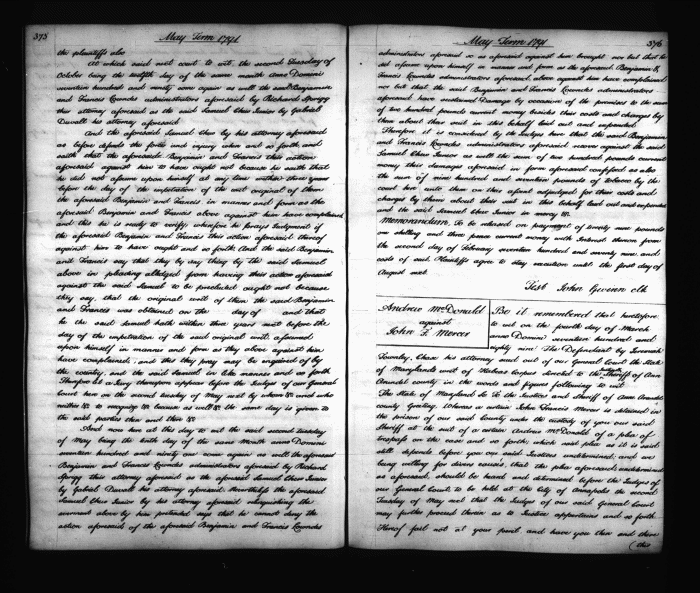 375
May Term 1791
the plaintiffs also
At which said next court to wit the second Tuesday of
October being the twelfth day of the same month Anno Domini
seventeen hundred and ninety come again as well the said Benjamin
and Francis Lowndes administrators aforesaid by Richard Sprigg
their attorney aforesaid as the said Samuel Chew Junior by Gabriel
Duvall his attorney aforesaid
And the aforesaid Samuel Chew by his attorney aforesaid
as before defends the force and injury when and so forth and
saith that the aforesaid Benjamin and Francis their action
aforesaid against him to have ought not because he saith that
he did not assume upon himself at any time within three years
before the day of the impetration of the writ original of them
the aforesaid Benjamin and Francis in manner and form as the
aforesaid Benjamin and Francis above against him have complained
and this he is ready to verify; wherefore he prays Judgment if
the aforesaid Benjamin and Francis their action aforesaid thereof
against him to have ought and so forth And the said Benjamin
and Francis say that they by any thing by the said Samuel
above in pleading alledged from having their action aforesaid
against the said Samuel to be precluded ought not because
they say, that the original writ of them the said Benjamin
and Francis was obtained on the day of and that
he the said Samuel hath within three years next before the
day of the impetration of the said original writ, assumed
upon himself in manner and form as they above against him
have complained, and this they pray may be enquired of by
the country, and the said Samuel in like manner and so forth
Therefore let a Jury thereupon appear before the Judges of our General
Court here on the second tuesday of May next by whom &c and who
neither &c to recognize &c because as well &c the same day is given to
the said parties then and there &c
And now here at this day to wit the said second tuesday
of May being the tenth day of the same Month anno Domini
seventeen hundred and ninety one come again as well the aforesaid
Benjamin and Francis Lowndes administrators aforesaid by Richard
Sprigg their attorney aforesaid as the aforesaid Samuel Chew Junior
by Gabriel Duvall his attorney aforesaid Nevertheless the aforesaid
Samuel Chew Junior by his attorney aforesaid relinquishing the
averment above by him pretended says that he cannot deny the
action aforesaid of the aforesaid Benjamin and Francis Lowndes
May Term 1791
376
administrators aforesaid so as aforesaid against him brought nor but that he
did assume upon himself in manner and form as the aforesaid Benjamin &
Francis Lowndes administrators aforesaid above against him have complained
nor but that the said Benjamin and Francis Lowndes administrators
aforesaid have sustained Damage by occasion of the premises to the sum
of two hundred pounds current money besides their costs and charges by
them about their suit in this behalf laid out and expended
Therefore it is considered by the Judges here that the said Benjamin
and Francis Lowndes administrators aforesaid recover against the said
Samuel Chew Junior as well the sum of two hundred pounds current
money their damages aforesaid in form aforesaid confessed as also
the sum of nine hundred and seventeen pounds of tobacco by the
court here unto them on their assent adjudged for their costs and
charges by them about their suit in this behalf laid out and expended
and the said Samuel Chew Junior in mercy &c
Memorandum, To be released on payment of ninety nine pounds
one shilling and three pence current money with Interest thereon from
the second day of February seventeen hundred and seventy nine and
costs of suit Plaintiffs agree to stay execution until the first day of
August next
Test John Gwinn clk
Andrew McDonald
against
John F. Mercer
Be it remembered that heretofore
to wit on the fourth day of March
anno Domini seventeen hundred and
eighty nine The Defendant by Jeremiah
Townley Chase his attorney sued out of our General Court the State
of Maryland writ of Habeas Corpus directed to the Sheriff of Ann
Arundel county in the words and figures following to wit
The State of Maryland Sc To the Justices and Sheriff of Ann Arundel
county Greeting Whereas a certain John Francis Mercer is detained in
the prison of our said County under the custody of you our said
Sheriff at the suit of a certain Andrew McDonald of a plea of
trespass on the case and so forth; which said plea as it is said
still depends before you our said Justices undetermined; and we
being willing for divers causes, that the plea aforesaid undetermined
as aforesaid, should be heard and determined before the Judges of
our General Court to be held at the City of Annapolis the second
Tuesday of May next that the Judges of our said General Court
may further proceed therein as to Justice appertains and so forth
Hereof fail not at your peril and have you then and there
(this